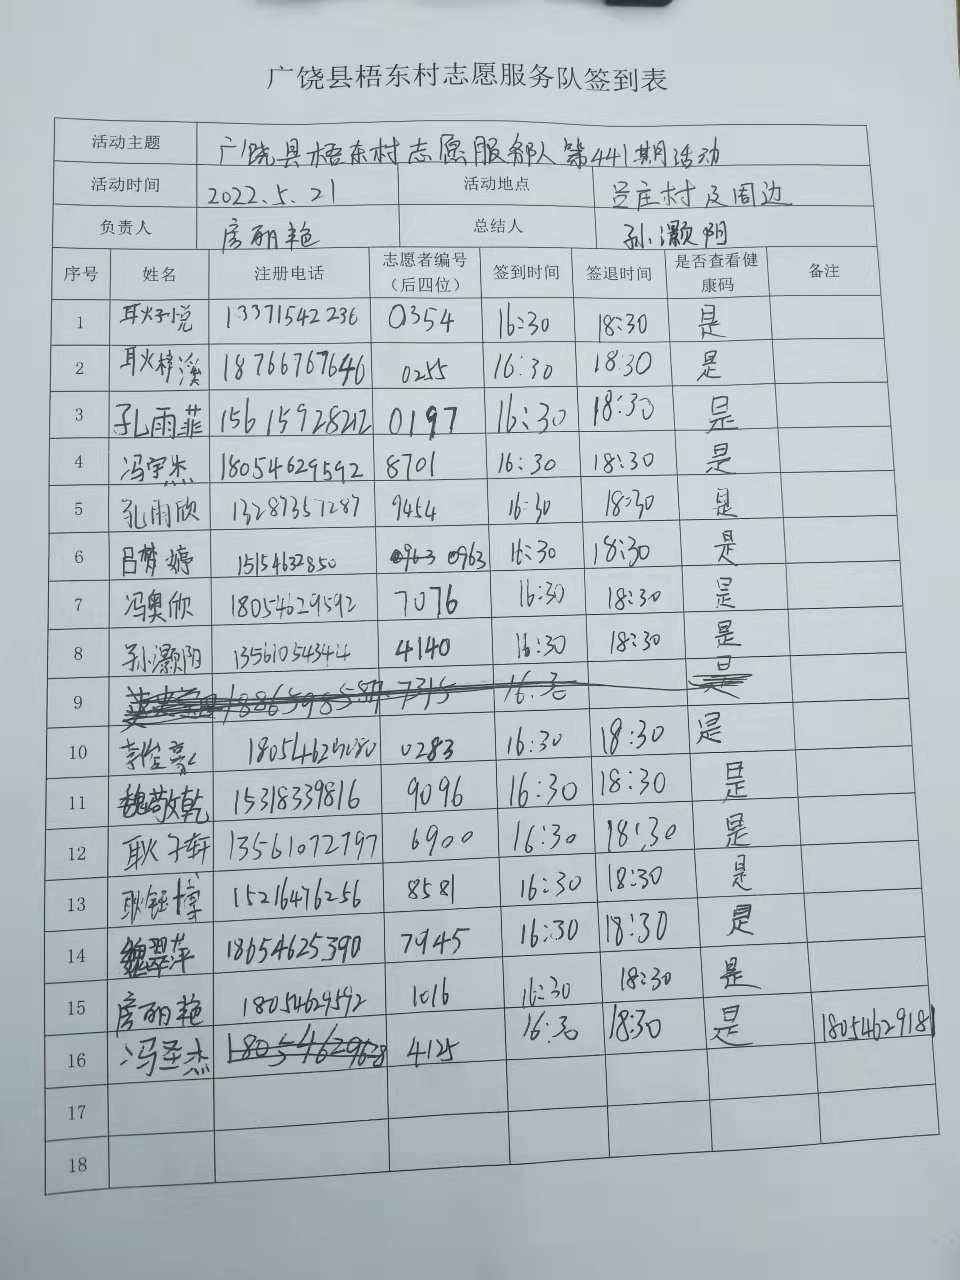 广饶县梧东村志愿服务队签到表
活动主题 广饶县梧东村志愿服务队第441期活动
活动时间 2022.5.21 活动地点 吕庄村及周边
负责人 房丽艳 总结人 孙灏阳
序号 姓名 注册电话 志愿者编号（后四位） 签到时间 签退时间 是否查看健康码 备注
1 耿子悦 13371542236 0354 16:30 18:30 是
2 耿梓溪 18766767646 0255 16:30 18:30 是
3 孔雨菲 15615928212 0197 16:30 18:30 是
4 冯宇杰 18054629592 8701 16:30 18:30 是
5 孔雨欣 13287357287 9454 16:30 18:30 是
6 吕梦婷 15154632850 0963 0963 16:30 18:30 是
7 冯奥欣 18054629592 7076 16:30 18:30 是
8 孙灏阳 13561054344 4140 16:30 18:30 是
9 7315 16:30 是
10 0283 16:30 18:30 是
11 魏敬乾 15318339816 9096 16:30 18:30 是
12 耿子轩 13561072797 6900 16:30 18:30 是
13 耿钰博 15216476256 8581 16:30 18:30 是
14 魏翠萍 18654625390 7945 16:30 18:30 是
15 房丽艳 18054629592 1016 16:30 18:30 是
16 冯圣杰 18054629638 4125 16:30 18:30 是 18054629181
17
18